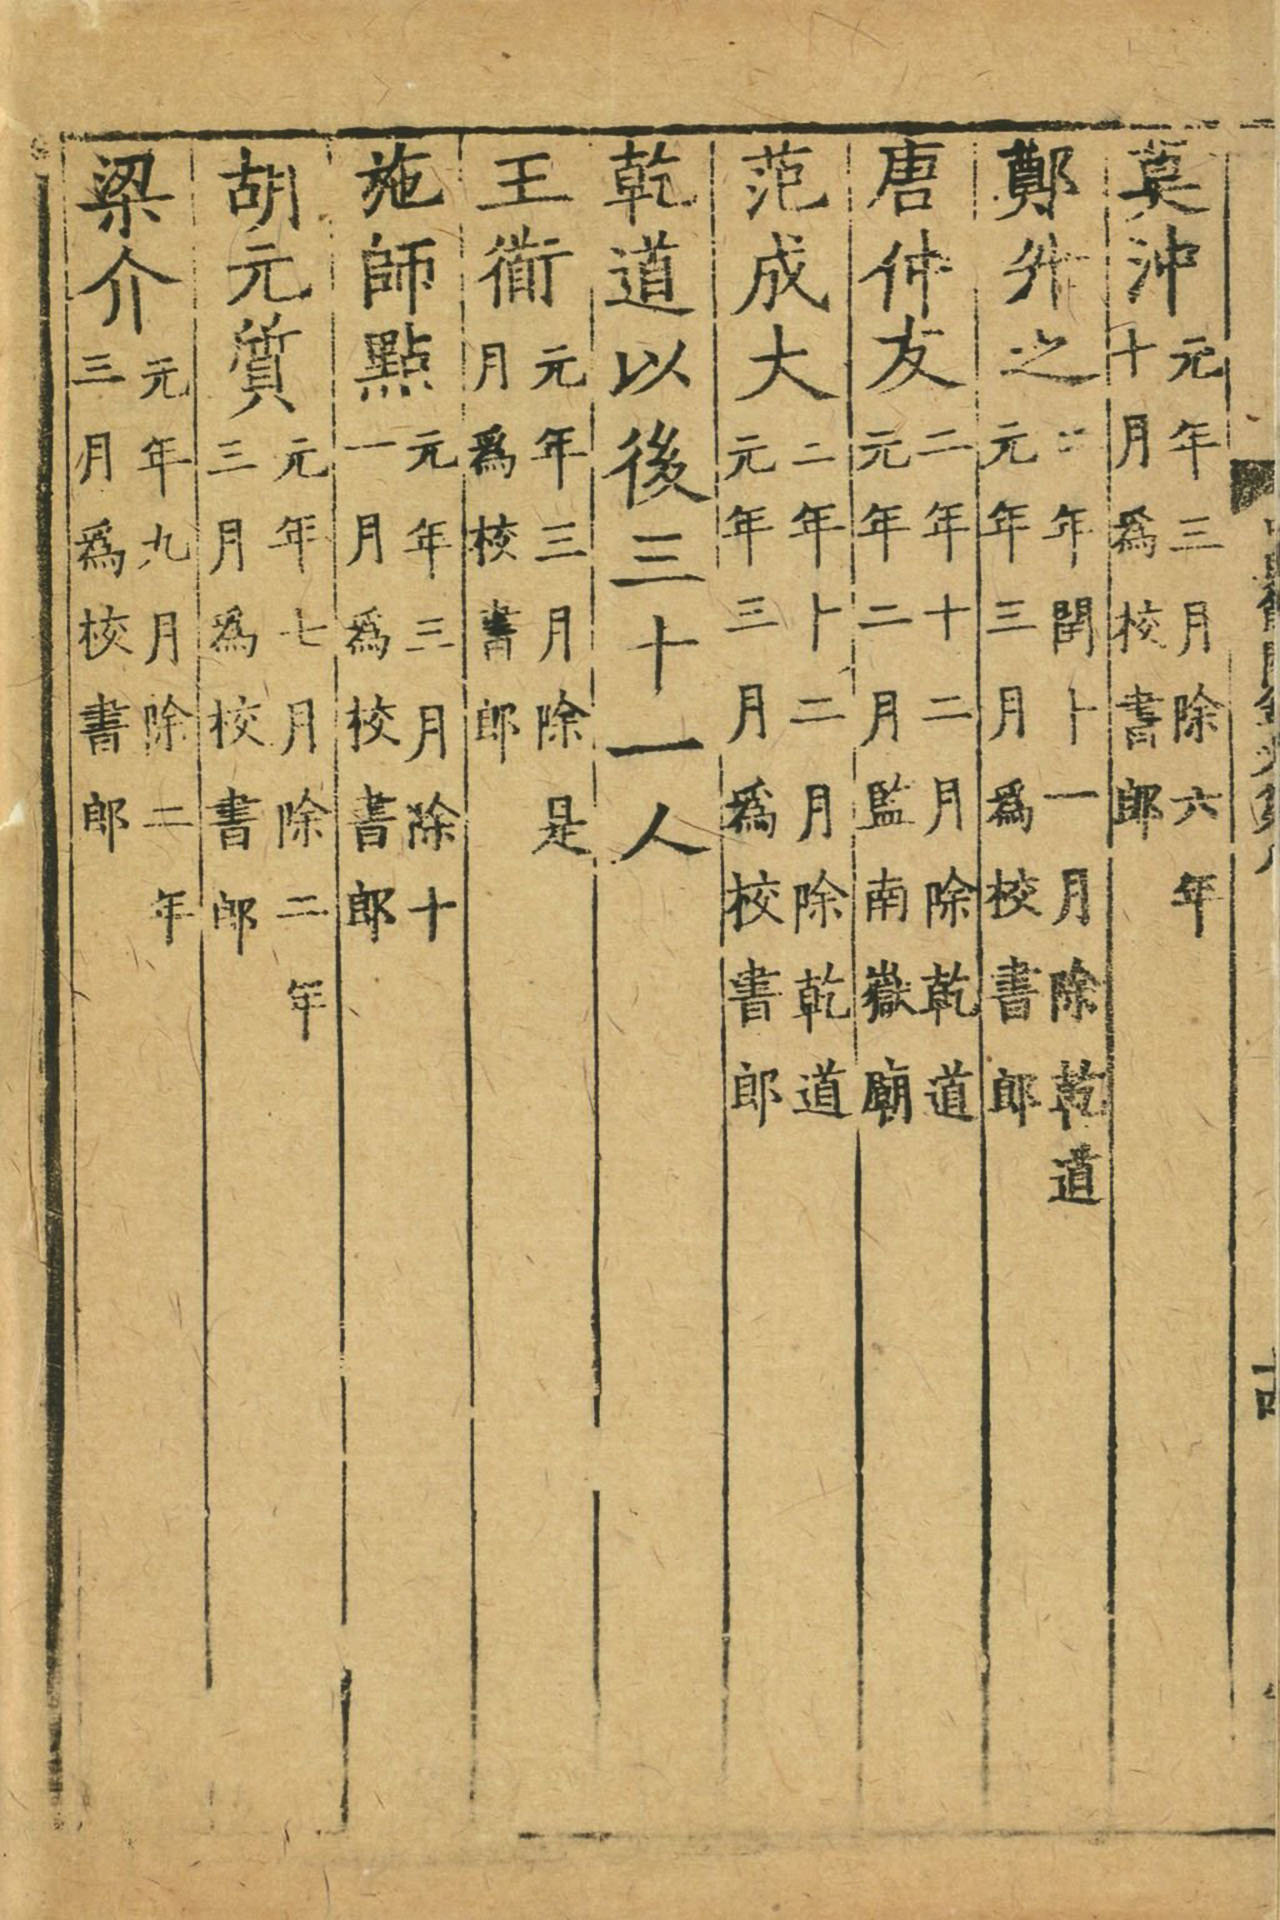 莫沖元年三月除六年十月爲校書郎
鄭升之二年閏十一月除乾道元年三月爲校書郎
唐仲友二年十二月除乾道元年二月監南嶽廟
范成大二年十二月除乾道元年三月爲校書郎
乾道以後三十一人
王衜元年三月除是月爲校書郎
施師點元年三月除十一月爲校書郎
胡元質元年七月除二年三月爲校書郎
梁介元年九月除二年三月爲校書郎